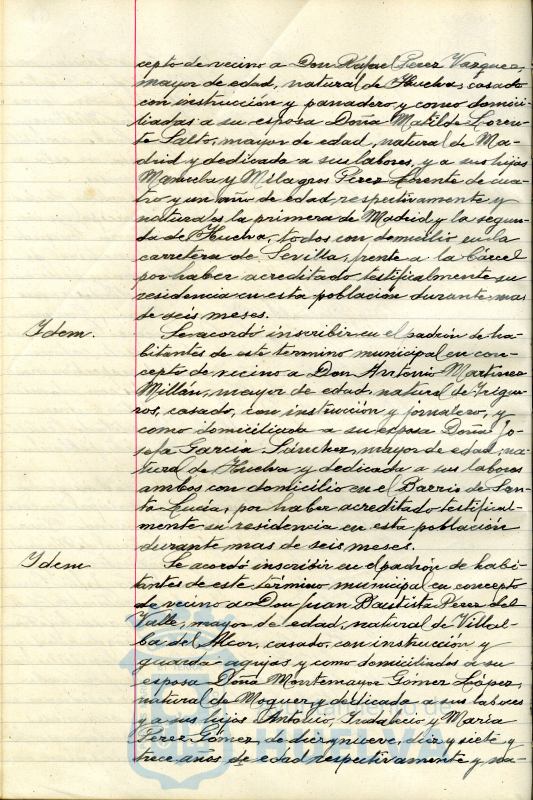 cepto de vecino a Don Rafael Perez Vazquez,
mayor de edad, natural de Huelva, casado
con instrucción y panadero, y como domici-
liadas a su esposa Doña Matilde Loren-
te Salto, mayor de edad, natural de Ma-
drid y dedicada a sus labores, y a sus hijas
Manuela y Milagros Perez Lorente de cua-
tro y un año de edad respectivamente y
naturales la primera de Madrid y la segun-
da de Huelva, todos con domicilio en la
carretera de Sevilla, frente a la Cárcel
por haber acreditado testificalmente su
residencia en esta población durante mas
de seis meses.
Idem. Se acordó inscribir en el padrón de ha-
bitantes de este término municipal en con-
cepto de vecino a Don Antonio Martinez
Millán, mayor de edad, natural de Trigue-
ros, casado, con instrucción y jornalero, y
como domiciliada a su esposa Doña Jo-
sefa Garcia Sánchez, mayor de edad, na-
tural de Huelva y dedicada a sus labores
ambos con domicilio en el Barrio de San-
ta Lucía, por haber acreditado testifical-
mente su residencia en esta población
durante mas de seis meses.
Idem Se acordó inscribir en el padrón de habi-
tantes de este término municipal en concepto
de vecino a Don Juan Bautista Perez del
Valle, mayor de edad, natural de Villal-
ba del Alcor, casado, con instrucción y
guarda agujas y como domiciliados a su
esposa Doña Montemayor Gómez López,
natural de Moguer y dedicada a sus labores
y a sus hijos Antonio, Indalecio y María
Perez Gómez, de diez y nueve, diez y siete y
trece años de edad respectivamente y na-
Ayuntamiento de
HUELVA